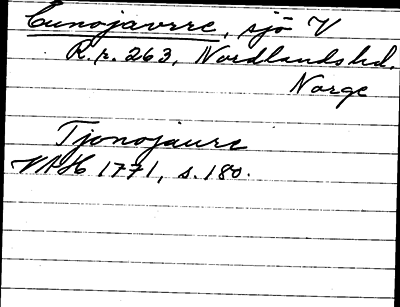 Čunojavrre, sjö V
R.r. 263, Nordlands höd.
Norge
Tjonojaure
VAH 1771, s. 180.